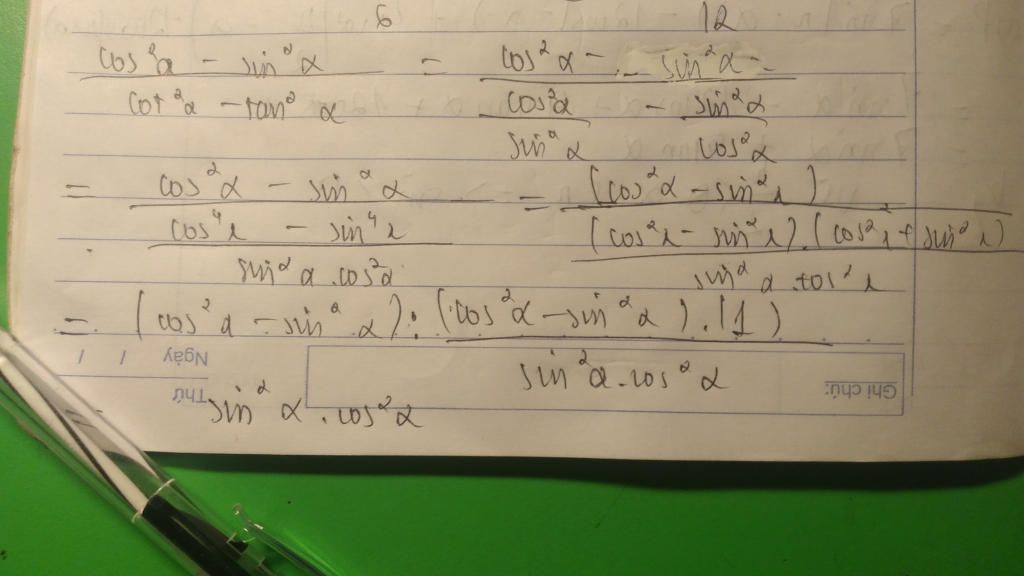 6 12
cos²α - sin²α / cot²α - tan²α = cos²α - sin²α / (cos²α / sin²α - sin²α / cos²α)
= cos²α - sin²α / (cos⁴α - sin⁴α / sin²α . cos²α) = (cos²α - sin²α) / ((cos²α - sin²α) . (cos²α + sin²α) / sin²α . cos²α)
= (cos²α - sin²α) : (cos²α - sin²α) . (1) / sin²α . cos²α
Ghi chú:
Thứ
Ngày / /
sin²α . cos²α